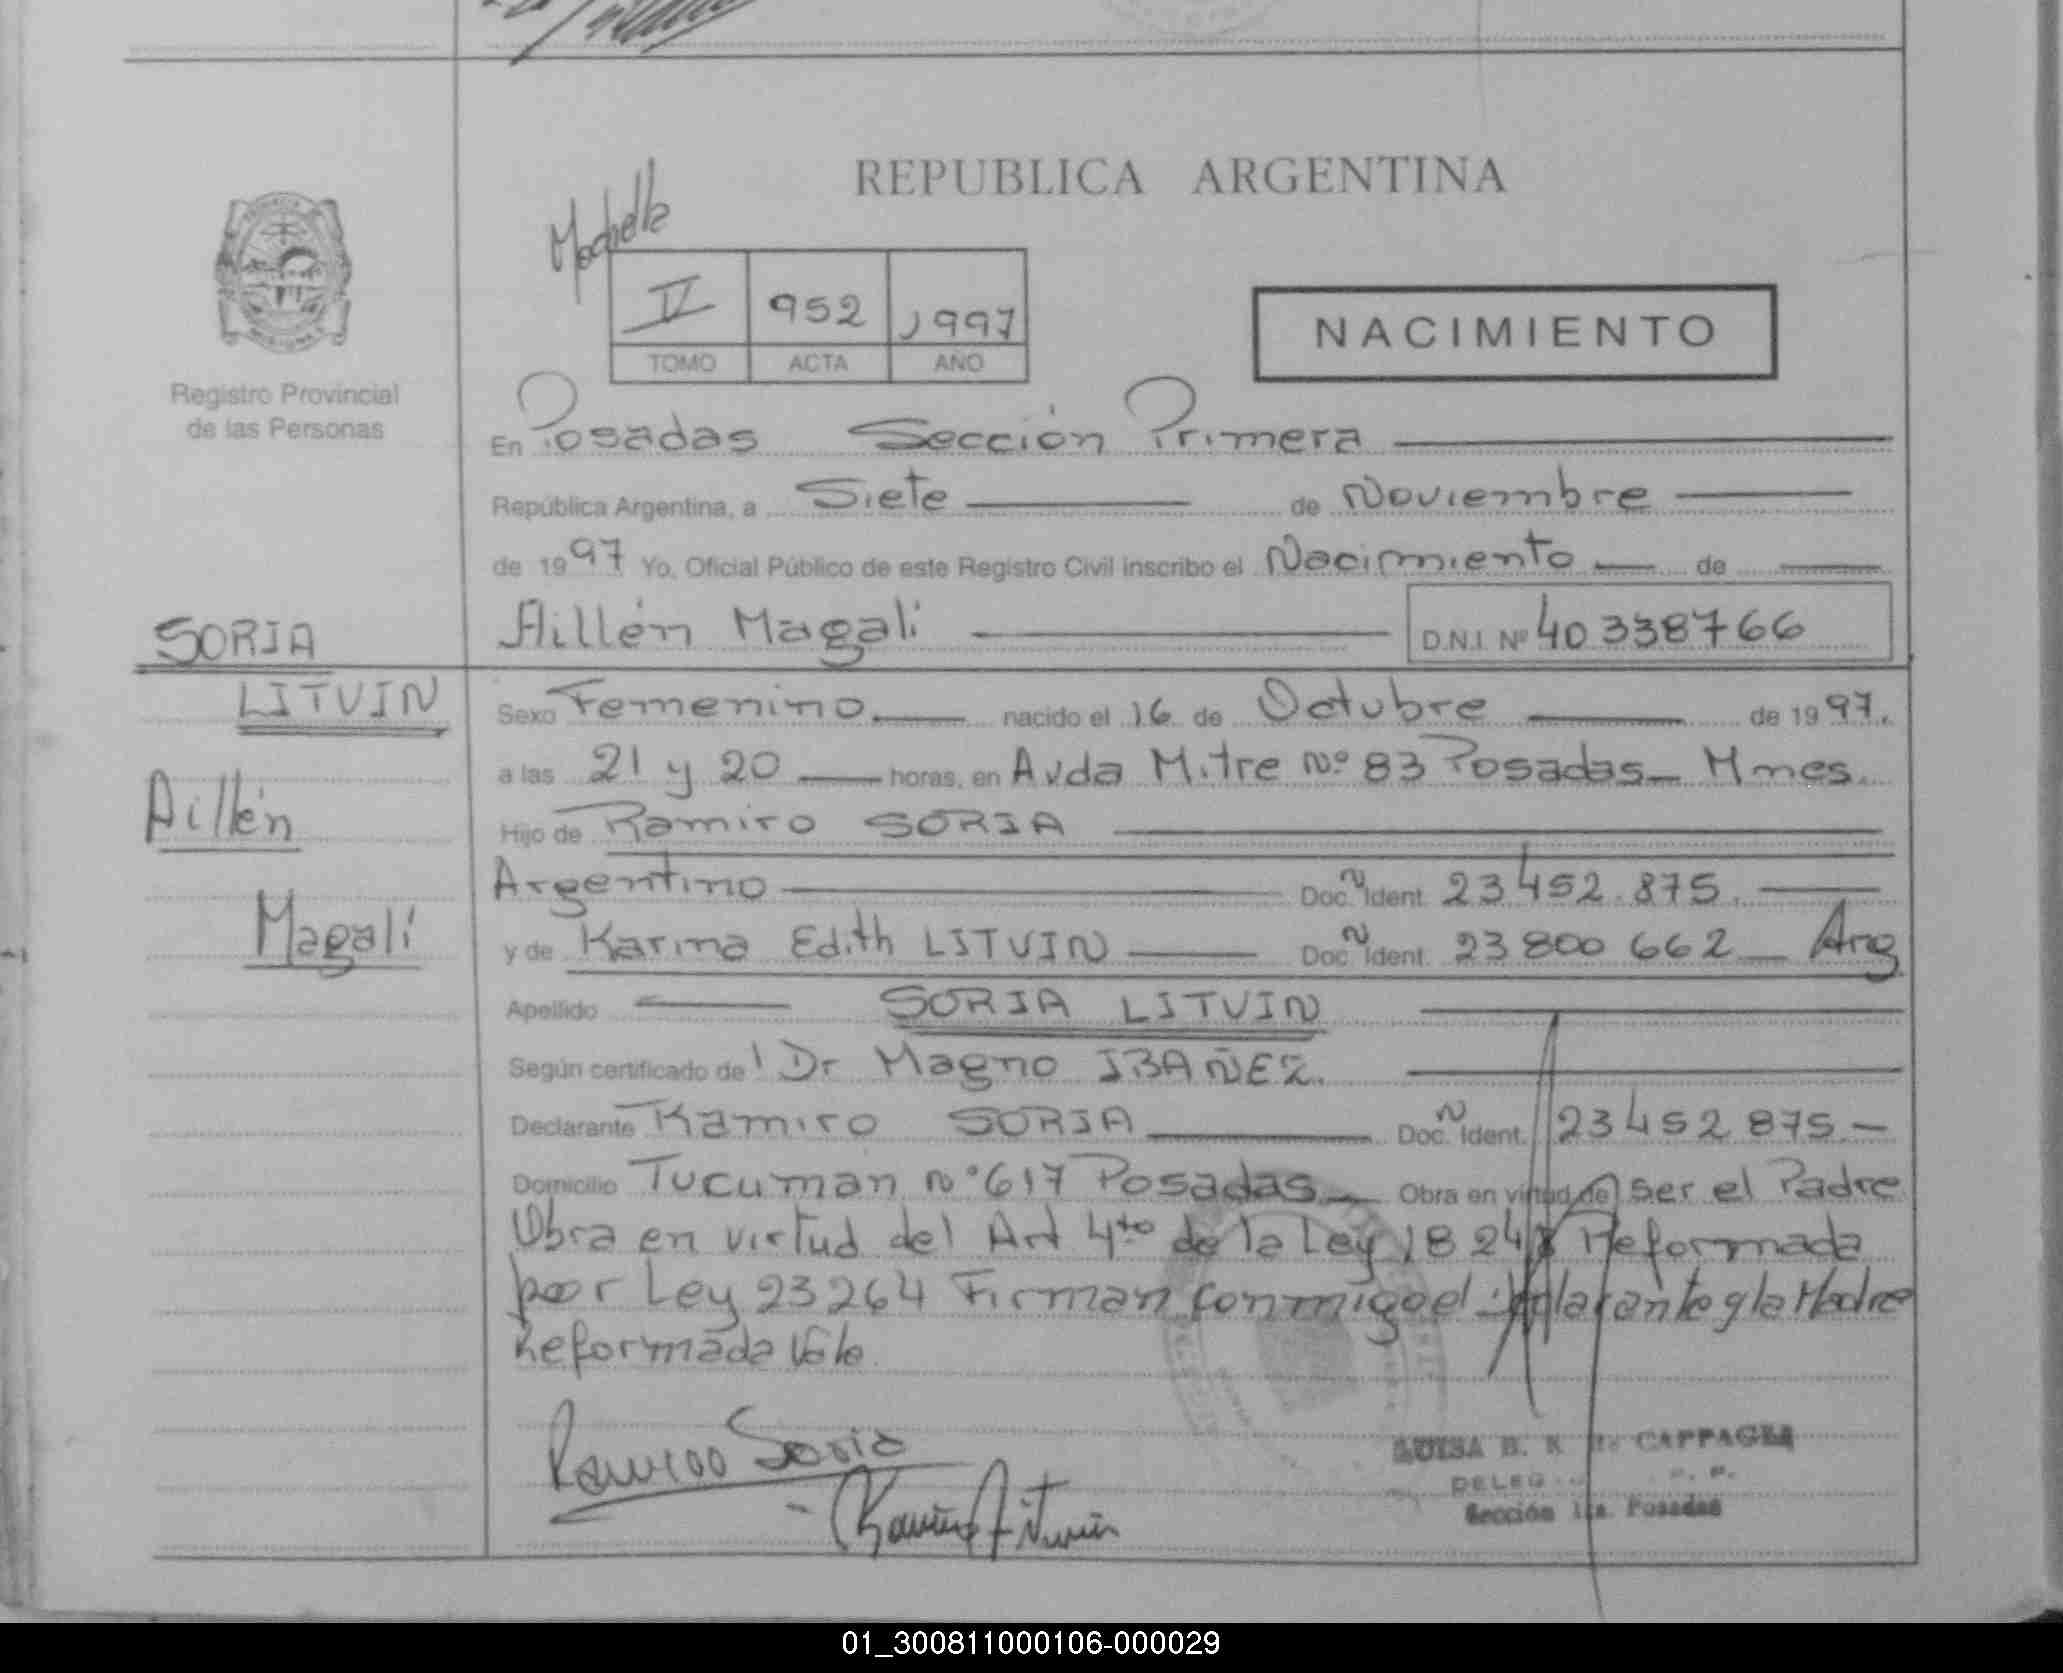 REPUBLICA ARGENTINA
IV 952 1997
TOMO ACTA AÑO
NACIMIENTO
Registro Provincial
de las Personas
En Posadas Sección Primera
República Argentina, a Siete de Noviembre
de 1997 Yo, Oficial Público de este Registro Civil inscribo el Nacimiento de
Aillén Magali D.N.I. Nº 40 338766
SORIA
LITVIN
Aillén
Magali
Sexo Femenino nacido el 16 de Octubre de 1997.
a las 21 y 20 horas, en Avda Mitre Nº 83 Posadas Mnes.
Hijo de Ramiro SORIA
Argentino Doc. N Ident. 23 452.875.
y de Karina Edith LITVIN Doc. N Ident. 23 800 662 Arg
Apellido SORIA LITVIN
Según certificado de Dr Magno IBAÑEZ.
Declarante Ramiro SORIA Doc. N Ident. 23 452 875.-
Domicilio Tucuman Nº 617 Posadas Obra en virtud de ser el Padre
Obra en virtud del Art 4to de la Ley 18 248 Reformada
por Ley 23264 Firman conmigo el declarante y la Madre
Reformada Vale
Ramiro Soria
Karina Litvin
LUISA B. CAPPAGLI
DELEG
Sección 1ra. Posadas
01_300811000106-000029